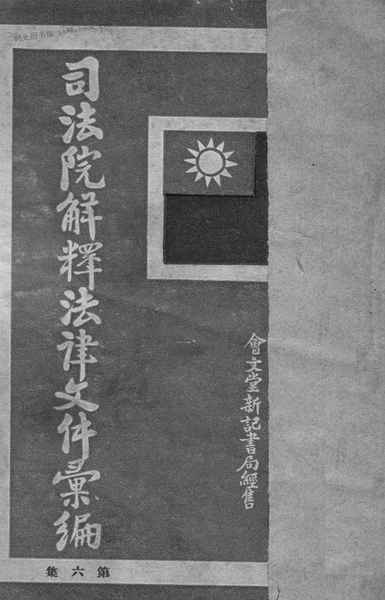 司法院解釋法律文件彙編
會文堂新記書局經售
第六集